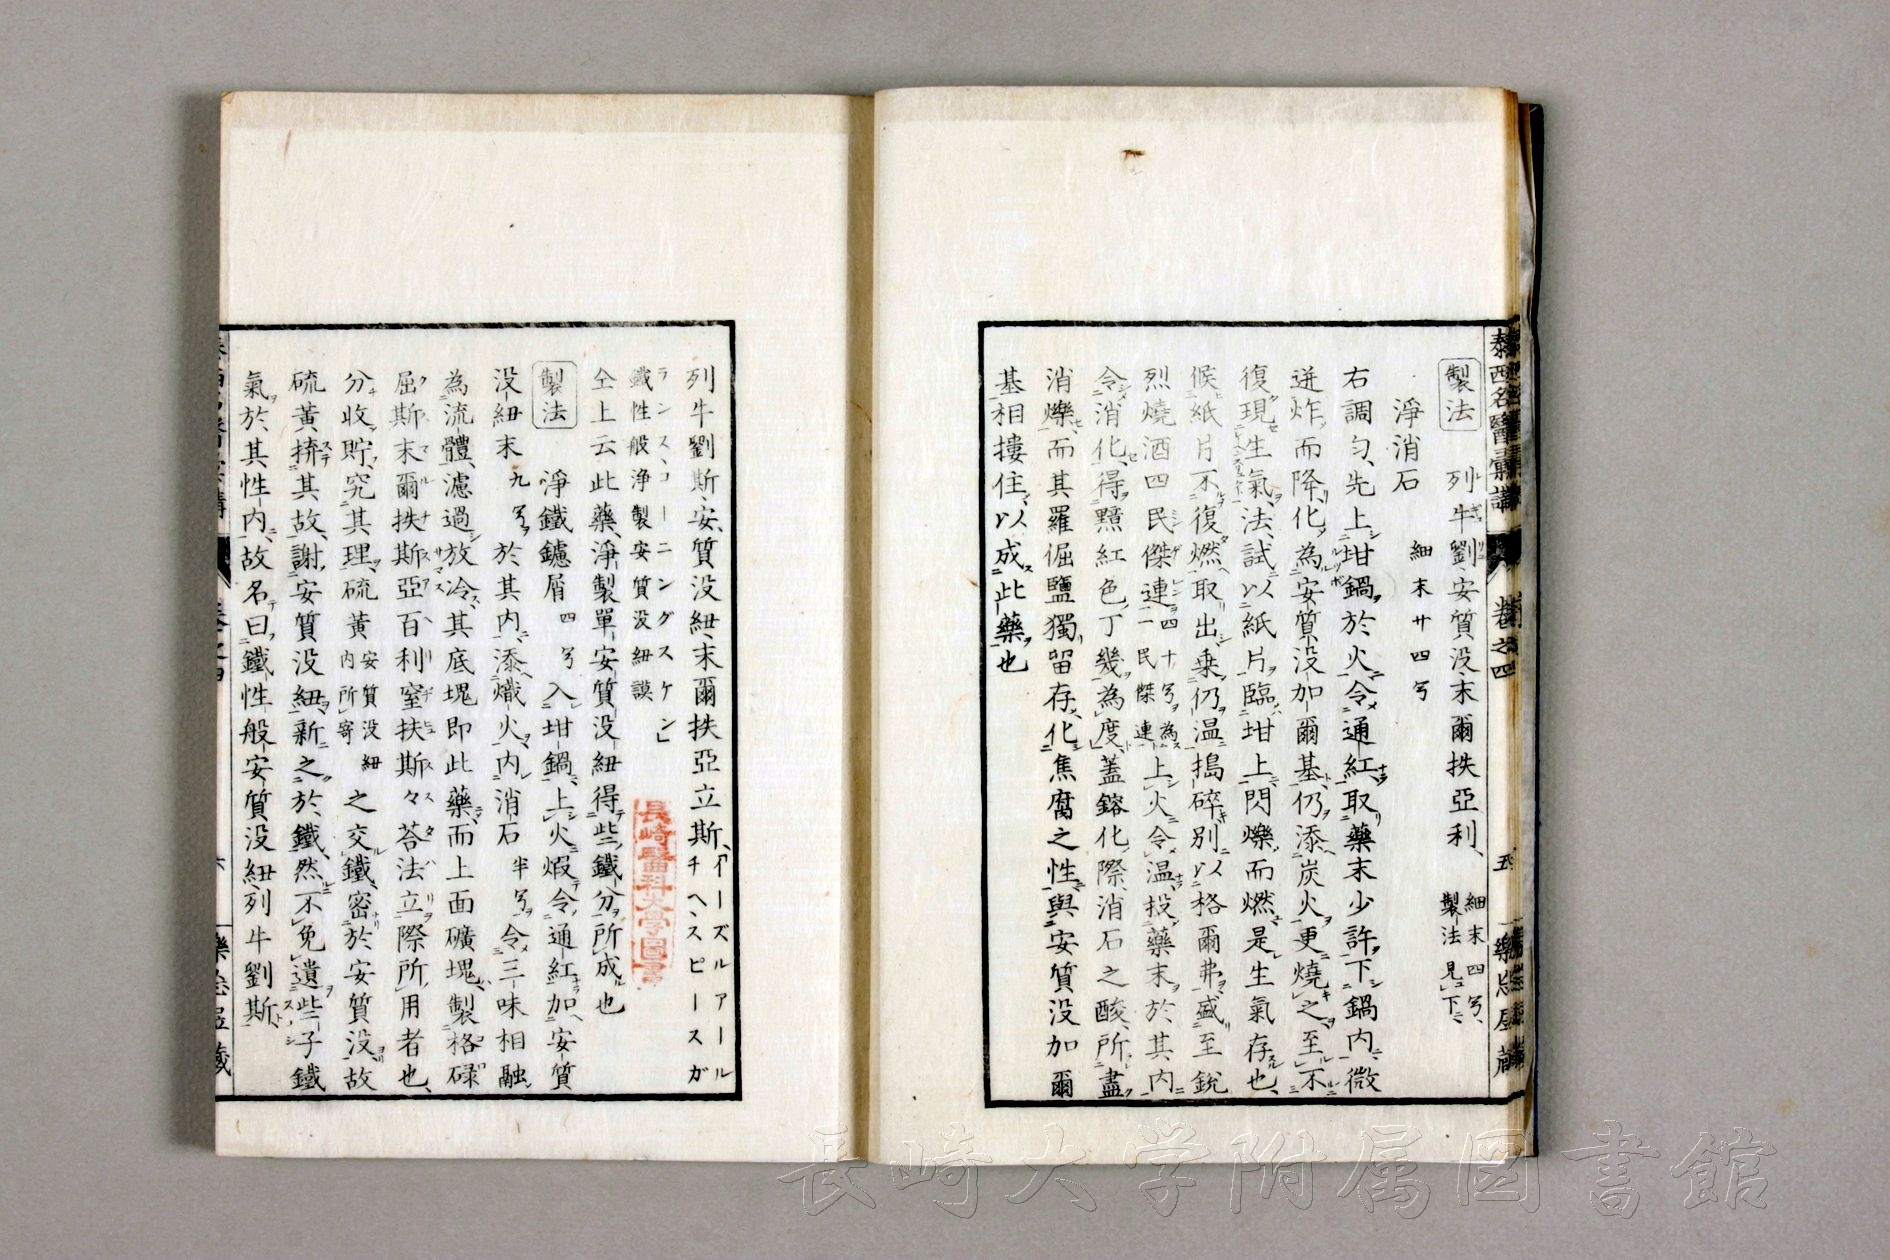 泰西名醫彙講 卷之四 五 樂忘居藏
製法 列牛劉安質没末爾扶亞利、細末四兮、製法見下
淨消石 細末廿四兮
右調匀、先上坩鍋於火、令通紅、取藥末少許、下鍋内、微
迸炸、而降化、為安質没加爾基、仍添炭火、更燒之、至不
復現生氣、法、試以紙片、臨坩上、閃爍而燃、是生氣存也、
候紙片不復燃、取出乗仍温、搗碎、別以格爾弗、盛至鋭
烈燒酒四民傑連一民傑連四十兮為上火令温、投藥末於其内
令消化、得黯紅色丁幾為度、蓋鎔化際、消石之酸、所盡
消爍、而其羅倔鹽獨留存、化焦腐之性、與安質没加爾
基相摟住、以成此藥也
列牛劉斯、安質没紐、末爾扶亞立斯、「イーズルアール
チヘ、スピースガ
ランス、コーニングスケン」
鐵性般浄製安質没紐謨
仝上云此藥、淨製單安質没紐得些鐵分所成也
製法 淨鐵鑢屑四兮入坩鍋、上火煆令通紅、加安質
没紐末九兮於其内、添熾火、内消石半兮、令三味相融
為流體、濾過放冷、其底塊即此藥、而上面礦塊、製格碌
屈斯末爾扶斯亞百利窒扶斯々荅法立際、所用者也、
分收貯、究其理、硫黄安質没紐内所寄之交鐵、密於安質没、故
硫黄擠其故、謝安質没紐、新之於鐵、然不免遺些子鐵
氣於其性内、故名曰鐵性般安質没紐列牛劉斯、
六
長崎醫科大學圖書
長崎大学附属図書館